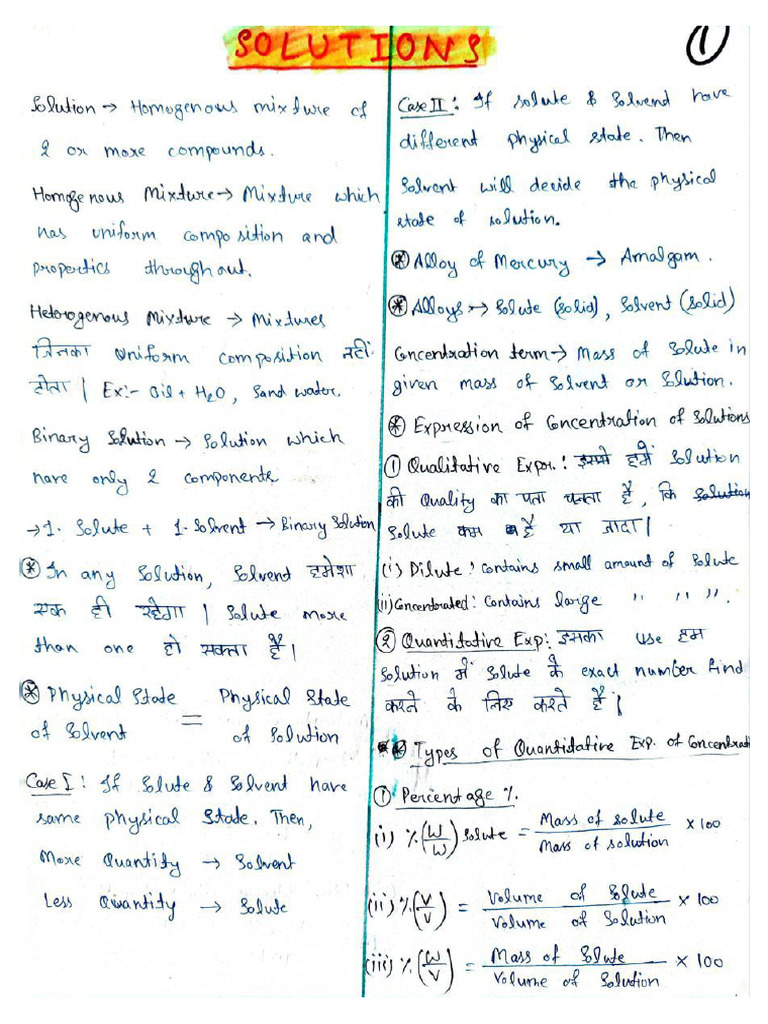 SOLUTIONS
1
Solution → Homogenous mixture of
2 or more compounds.
Homogenous Mixture → Mixture which
has uniform composition and
properties throughout.
Heterogenous Mixture → Mixtures
जिनका uniform composition नहीं
होता | Ex:- Oil + H₂O, Sand water.
Binary Solution → Solution which
have only 2 components
→ 1. Solute + 1. Solvent → Binary Solution
* In any Solution, Solvent हमेशा
एक ही रहेगा | Solute more
than one हो सकता है |
* Physical State of Solvent = Physical State of Solution
Case I : If Solute & Solvent have
same physical State. Then,
More Quantity → Solvent
Less Quantity → Solute
Case II : If solute & Solvend have
different physical state. Then
Solvent will decide the physical
state of solution.
* Alloy of Mercury → Amalgam.
* Alloys → Solute (solid), Solvent (solid)
Concentration term → Mass of Solute in
given mass of Solvent or Solution.
* Expression of Concentration of Solutions
1 Qualitative Expor. : इससे हमें Solution
की Quality का पता चलता है, कि solution
Solute कम है या जादा |
(i) Dilute : contains small amount of Solute
(ii) Concentrated : Contains large " " " .
2 Quantitative Exp : इसका use हम
Solution में Solute के exact number find
करने के लिए करते हैं |
* Types of Quantitative Exp. of Concentrati
1 Percentage %.
(i) %(W/W) Solute = Mass of solute / Mass of solution × 100
(ii) %(V/V) = Volume of Solute / Volume of Solution × 100
(iii) %(W/V) = Mass of Solute / Volume of Solution × 100